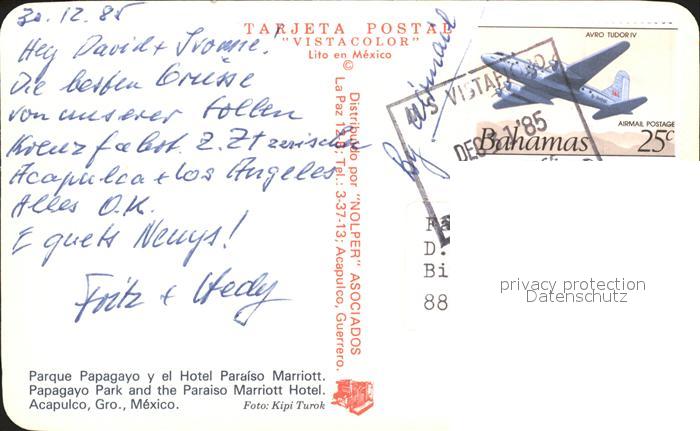 30.12.85
Hey David + Ivonne!
Die besten Grüsse
von unserer tollen
Kreuzfahrt. Z.Zt zwischen
Acapulco + Los Angeles
Alles O.K.
E guets Neuys!
Fritz + Hedy
Parque Papagayo y el Hotel Paraíso Marriott.
Papagayo Park and the Paraiso Marriott Hotel.
Acapulco, Gro., México.
Foto: Kipi Turok
TARJETA POSTAL
"VISTACOLOR"
Lito en México
©
Distribuido por "NOLPER" ASOCIADOS
La Paz Tel.: 3-37-13; Acapulco, Guerrero.
By Airmail
VISTAFJORD
DEC 31 '85
AVRO TUDOR IV
AIRMAIL POSTAGE
Bahamas 25c
D.
Bi
88
privacy protection
Datenschutz